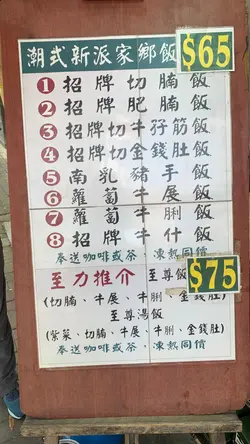 潮式新派家鄉飯 $65
1 招牌切腩飯
2 招牌肥腩飯
3 招牌切牛孖筋飯
4 招牌切金錢肚飯
5 南乳豬手飯
6 蘿蔔牛展飯
7 蘿蔔牛脷飯
8 招牌牛什飯
奉送咖啡或茶 凍熱同價
至力推介 至尊飯 $75
(切腩、牛展、牛脷、金錢肚)
至尊湯飯
(紫菜、切腩、牛展、牛脷、金錢肚)
奉送咖啡或茶、凍熱同價